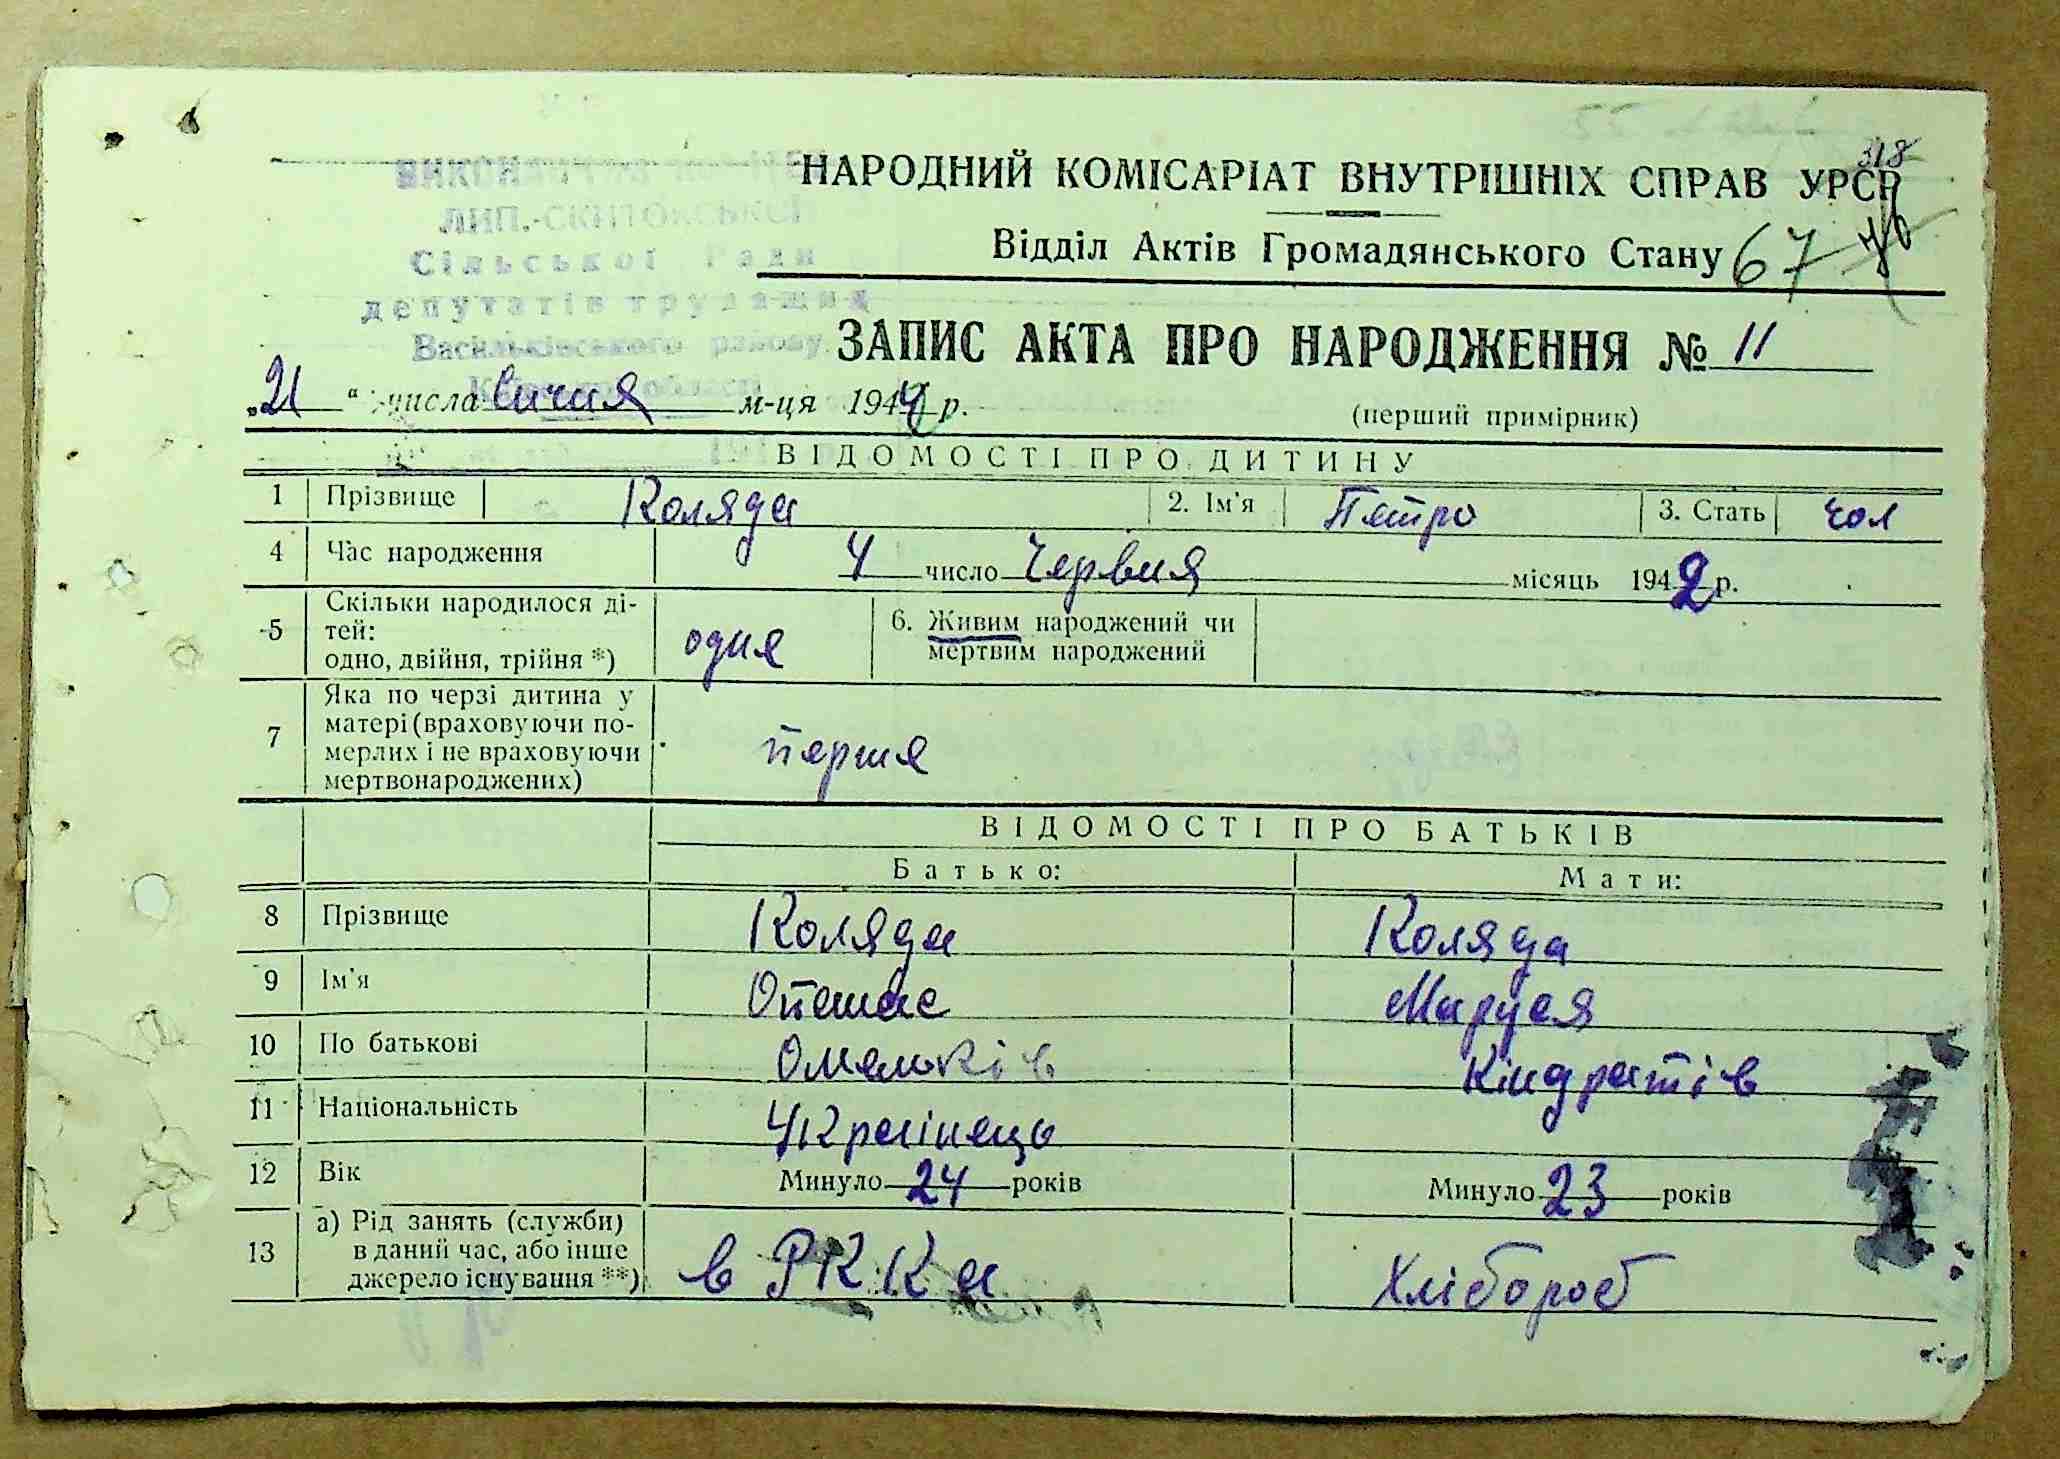 318
НАРОДНИЙ КОМІСАРІАТ ВНУТРІШНІХ СПРАВ УРСР
ВИКОНАВЧИЙ КОМІТЕТ
ЛИП.-СКИТОКСЬКОЇ
Сільської Ради
депутатів трудящих
Васильківського району
Київської області
Відділ Актів Громадянського Стану 67
ЗАПИС АКТА ПРО НАРОДЖЕННЯ № 11
„21“ числа Січня м-ця 1944 р. (перший примірник)
ВІДОМОСТІ ПРО ДИТИНУ
1 Прізвище Коляда 2. Ім'я Петро 3. Стать чол
4 Час народження 4 число Червня місяць 1942 р.
5 Скільки народилося ді-
тей:
одно, двійня, трійня *) одна 6. Живим народжений чи
мертвим народжений
7 Яка по черзі дитина у
матері (враховуючи по-
мерлих і не враховуючи
мертвонароджених) перша
ВІДОМОСТІ ПРО БАТЬКІВ
Батько: Мати:
8 Прізвище Коляда Коляда
9 Ім'я Опанас Маруся
10 По батькові Омелькі в Кіндратів
11 Національність Українець
12 Вік Минуло 24 років Минуло 23 років
13 а) Рід занять (служби)
в даний час, або інше
джерело існування **) в РККа Хлібороб